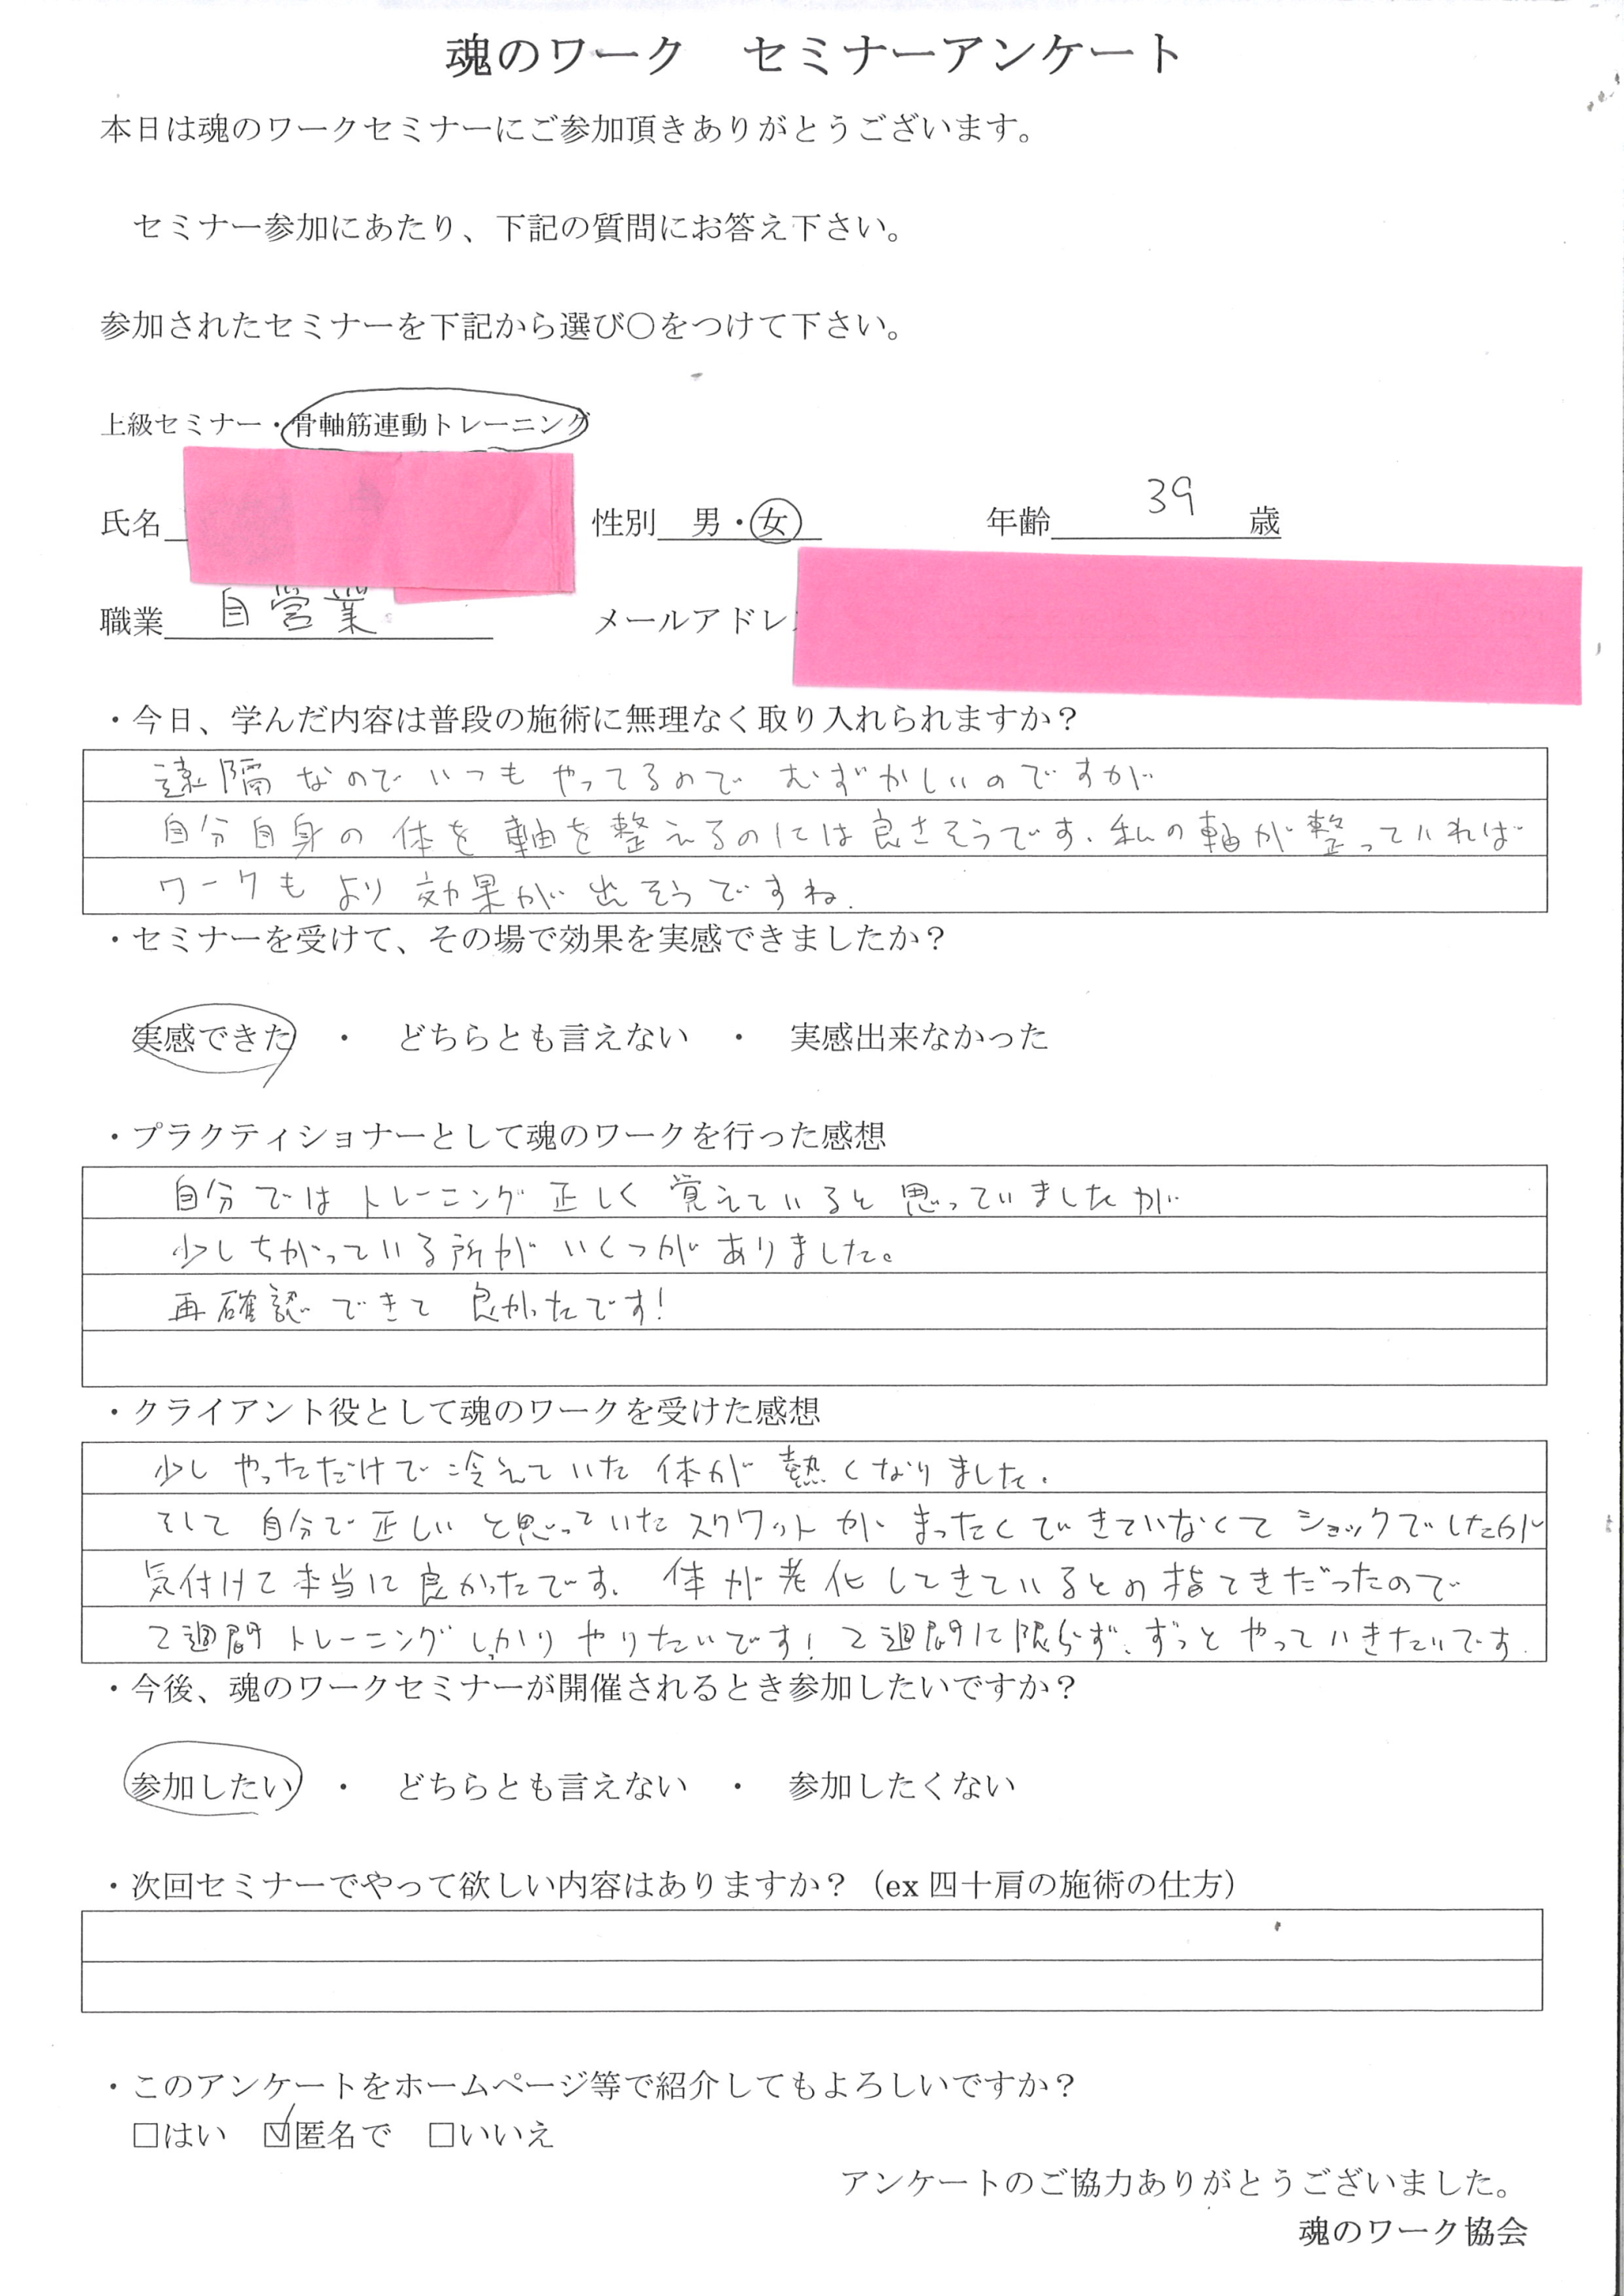 魂のワーク　セミナーアンケート
本日は魂のワークセミナーにご参加頂きありがとうございます。
セミナー参加にあたり、下記の質問にお答え下さい。
参加されたセミナーを下記から選び〇をつけて下さい。
上級セミナー・骨軸筋連動トレーニング
氏名　性別　男・女　年齢 39 歳
職業 自営業　メールアドレ
・今日、学んだ内容は普段の施術に無理なく取り入れられますか？
遠隔なのでいつもやってるので むずかしいのですが
自分自身の体を軸を整えるのには良さそうです、私の軸が整っていれば
ワークもより効果が出そうですね.
・セミナーを受けて、その場で効果を実感できましたか？
実感できた　・　どちらとも言えない　・　実感出来なかった
・プラクティショナーとして魂のワークを行った感想
自分ではトレーニング正しく覚えていると思っていましたが
少しちがっている所がいくつがありました。
再確認できて良かったです！
・クライアント役として魂のワークを受けた感想
少しやっただけで冷えていた体が熱くなりました.
そして自分で正しいと思っていたスクワットがまったくできていなくてショックでしたが
気付けて本当に良かったです. 体が老化してきているとの指てきだったので
2週間トレーニングしっかりやりたいです！2週間に限らず、ずっとやっていきたいです.
・今後、魂のワークセミナーが開催されるとき参加したいですか？
参加したい　・　どちらとも言えない　・　参加したくない
・次回セミナーでやって欲しい内容はありますか？（ex 四十肩の施術の仕方）
・このアンケートをホームページ等で紹介してもよろしいですか？
□はい　☑匿名で　□いいえ
アンケートのご協力ありがとうございました。
魂のワーク協会